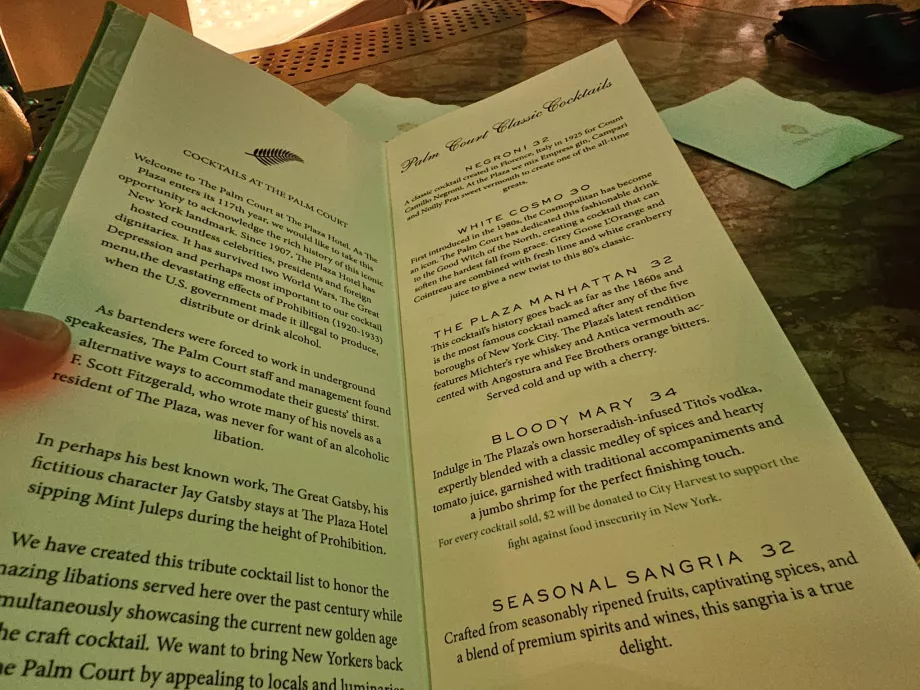 COCKTAILS AT THE PALM COURT
Welcome to The Palm Court at The Plaza Hotel. As The
Plaza enters its 117th year, we would like to take this
opportunity to acknowledge the rich history of this iconic
New York landmark. Since 1907, The Plaza Hotel has
hosted countless celebrities, presidents and foreign
dignitaries. It has survived two World Wars, The Great
Depression and perhaps most important to our cocktail
menu,the devastating effects of Prohibition (1920-1933)
when the U.S. government made it illegal to produce,
distribute or drink alcohol.
As bartenders were forced to work in underground
speakeasies, The Palm Court staff and management found
alternative ways to accommodate their guests' thirst.
F. Scott Fitzgerald, who wrote many of his novels as a
resident of The Plaza, was never for want of an alcoholic
libation.
In perhaps his best known work, The Great Gatsby, his
fictitious character Jay Gatsby stays at The Plaza Hotel
sipping Mint Juleps during the height of Prohibition.
We have created this tribute cocktail list to honor the
mazing libations served here over the past century while
multaneously showcasing the current new golden age
he craft cocktail. We want to bring New Yorkers back
he Palm Court by appealing to locals and luminaries
Palm Court Classic Cocktails
NEGRONI 32
A classic cocktail created in Florence, Italy in 1925 for Count
Camillo Negroni. At the Plaza we mix Empress gin, Campari
and Noilly Prat sweet vermouth to create one of the all-time
greats.
WHITE COSMO 30
First introduced in the 1980s, the Cosmopolitan has become
an icon. The Palm Court has dedicated this fashionable drink
to the Good Witch of the North, creating a cocktail that can
soften the hardest fall from grace. Grey Goose L'Orange and
Cointreau are combined with fresh lime and white cranberry
juice to give a new twist to this 80's classic.
THE PLAZA MANHATTAN 32
This cocktail's history goes back as far as the 1860s and
is the most famous cocktail named after any of the five
boroughs of New York City. The Plaza's latest rendition
features Michter's rye whiskey and Antica vermouth ac-
cented with Angostura and Fee Brothers orange bitters.
Served cold and up with a cherry.
BLOODY MARY 34
Indulge in The Plaza's own horseradish-infused Tito's vodka,
expertly blended with a classic medley of spices and hearty
tomato juice, garnished with traditional accompaniments and
a jumbo shrimp for the perfect finishing touch.
For every cocktail sold, $2 will be donated to City Harvest to support the
fight against food insecurity in New York.
SEASONAL SANGRIA 32
Crafted from seasonably ripened fruits, captivating spices, and
a blend of premium spirits and wines, this sangria is a true
delight.